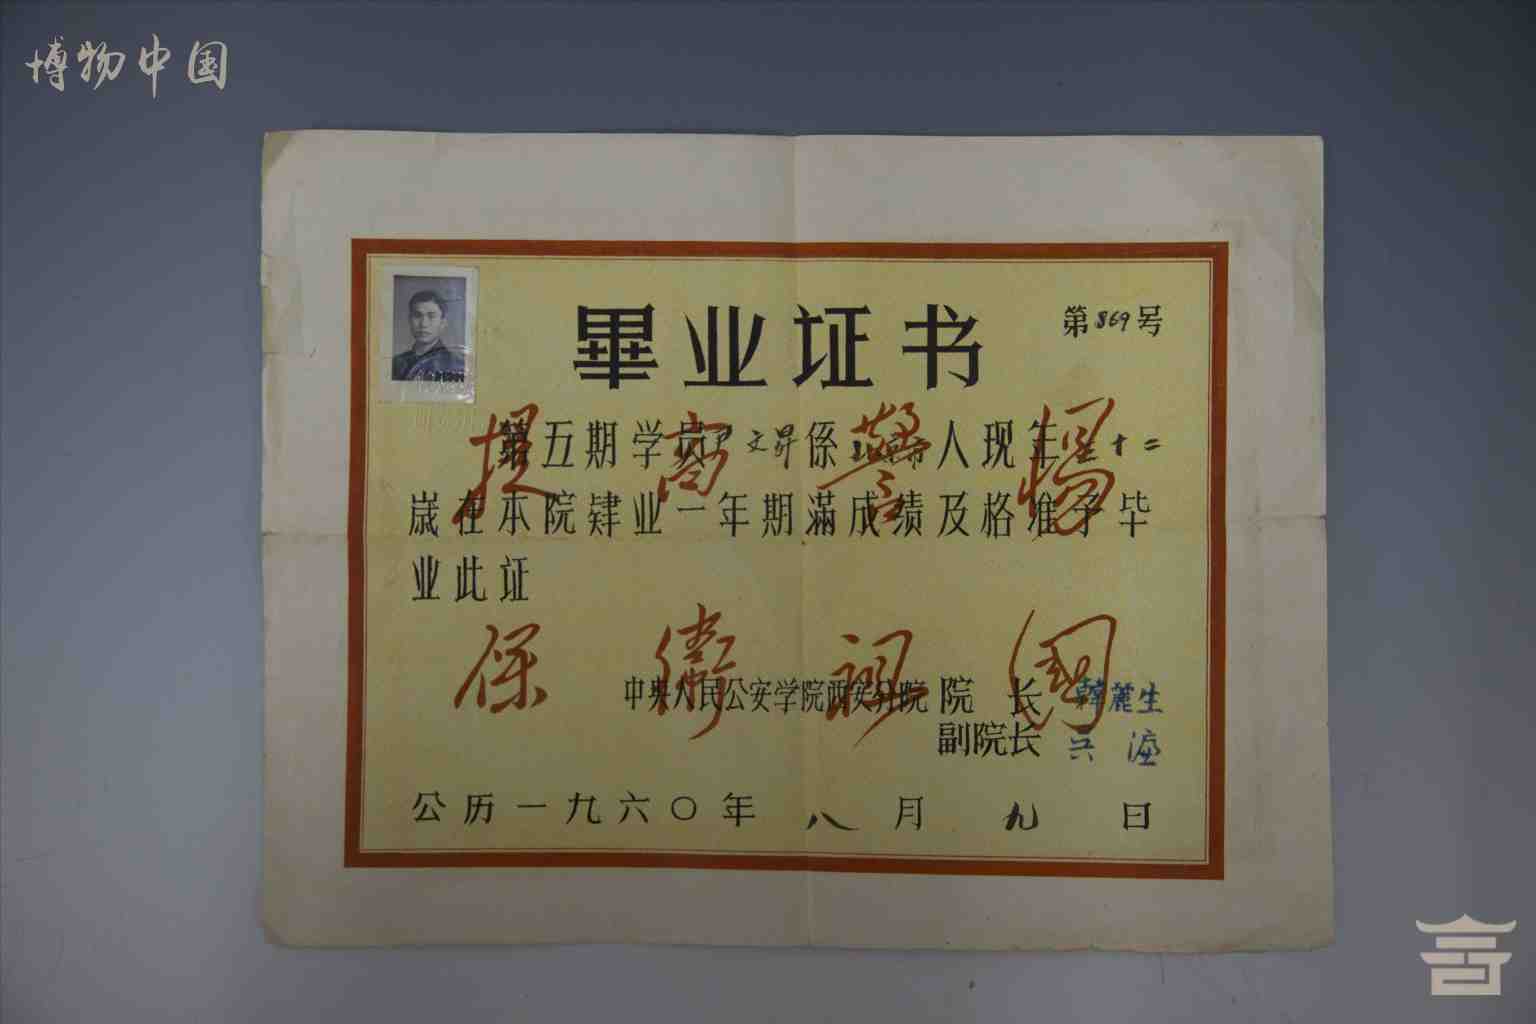 博物中国
畢业证书
第869号
第五期学员 文昇係 人现年 十二
嵗在本院肄业一年期滿成绩及格准予毕
业此证
提高警惕
保衛祖國
中央人民公安学院西安分院 院长 韓麓生
副院长
公历一九六〇年八月九日